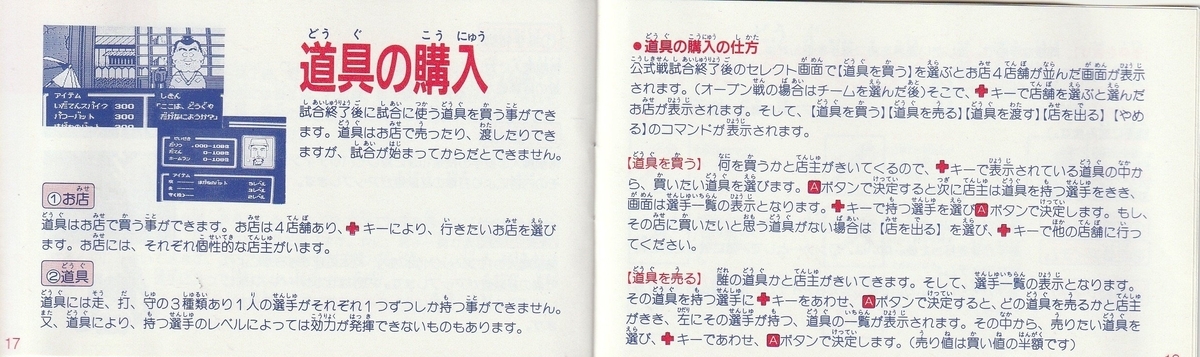 道具の購入
試合終了後に試合に使う道具を買う事ができ
ます。道具はお店で売ったり、渡したりでき
ますが、試合が始まってからだとできません。
アイテム
いだてんスパイク 300
パワーバット 300
しきん
アイテム
①お店
道具はお店で買う事ができます。お店は4店舗あり、✚キーにより、行きたいお店を選び
ます。お店には、それぞれ個性的な店主がいます。
②道具
道具には走、打、守の3種類あり1人の選手がそれぞれ1つずつしか持つ事ができません。
又、道具により、持つ選手のレベルによっては効力が発揮できないものもあります。
17
●道具の購入の仕方
公式戦試合終了後のセレクト画面で【道具を買う】を選ぶとお店4店舗が並んだ画面が表示
されます。(オープン戦の場合はチームを選んだ後)そこで、✚キーで店舗を選ぶと選んだ
お店が表示されます。そして、【道具を買う】【道具を売る】【道具を渡す】【店を出る】【やめ
る】のコマンドが表示されます。
【道具を買う】 何を買うかと店主がきいてくるので、✚キーで表示されている道具の中か
ら、買いたい道具を選びます。Aボタンで決定すると次に店主は道具を持つ選手をきき、
画面は選手一覧の表示となります。✚キーで持つ選手を選びAボタンで決定します。もし、
その店に買いたいと思う道具がない場合は【店を出る】を選び、✚キーで他の店舗に行っ
てください。
【道具を売る】 誰の道具かと店主がきいてきます。そして、選手一覧の表示となります。
その道具を持つ選手に✚キーをあわせ、Aボタンで決定すると、どの道具を売るかと店主
がきき、左にその選手が持つ、道具の一覧が表示されます。その中から、売りたい道具を
選び、✚キーであわせ、Aボタンで決定します。(売り値は買い値の半額です)